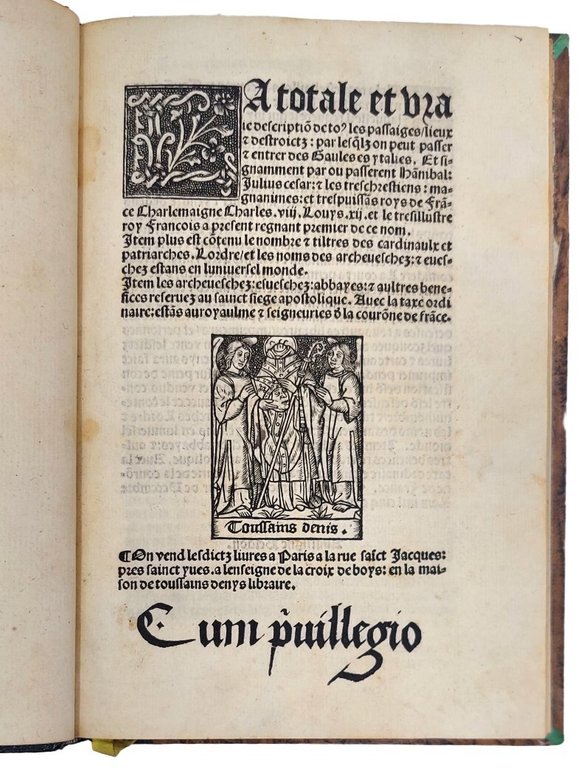 LA totale et vra
ie descriptiõ de to⁹ les passaiges/lieux
⁊ destroictz: par lesq̃lz on peut passer
⁊ entrer des Gaules es ytalies. Et si-
gnamment par ou passerent Hãnibal:
Julius cesar: ⁊ les treschrestiens: ma-
gnanimes: et trespuissãs roys de Frã-
ce Charlemaigne Charles. viij. Louys. xij. et le tresillustre
roy Francois a present regnant premier de ce nom.
Item plus est cõtenu le nombre ⁊ tiltres des cardinaulx et
patriarches. Lordre/et les noms des archeueschez: ⁊ eues-
chez estans en luniuersel monde.
Item les archeueschez: esueschez: abbayes: ⁊ aultres bene-
fices reseruez au sainct siege apostolique. Auec la taxe ordi
naire: estãs au royaulme ⁊ seigneuries d̃ la courõne de frãce.
Toussains denis.
¶On vend lesdictz liures a Paris a la rue saĩct Jacques:
pres sainct yues. a lenseigne de la croix de boys: en la mai-
son de toussains denys libraire.
Cum p̃uillegio